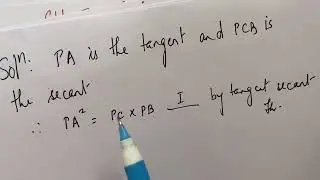 Soln: PA is the tangent and PCB is
the secant
∴ PA² = PC × PB — I by tangent secant
th.